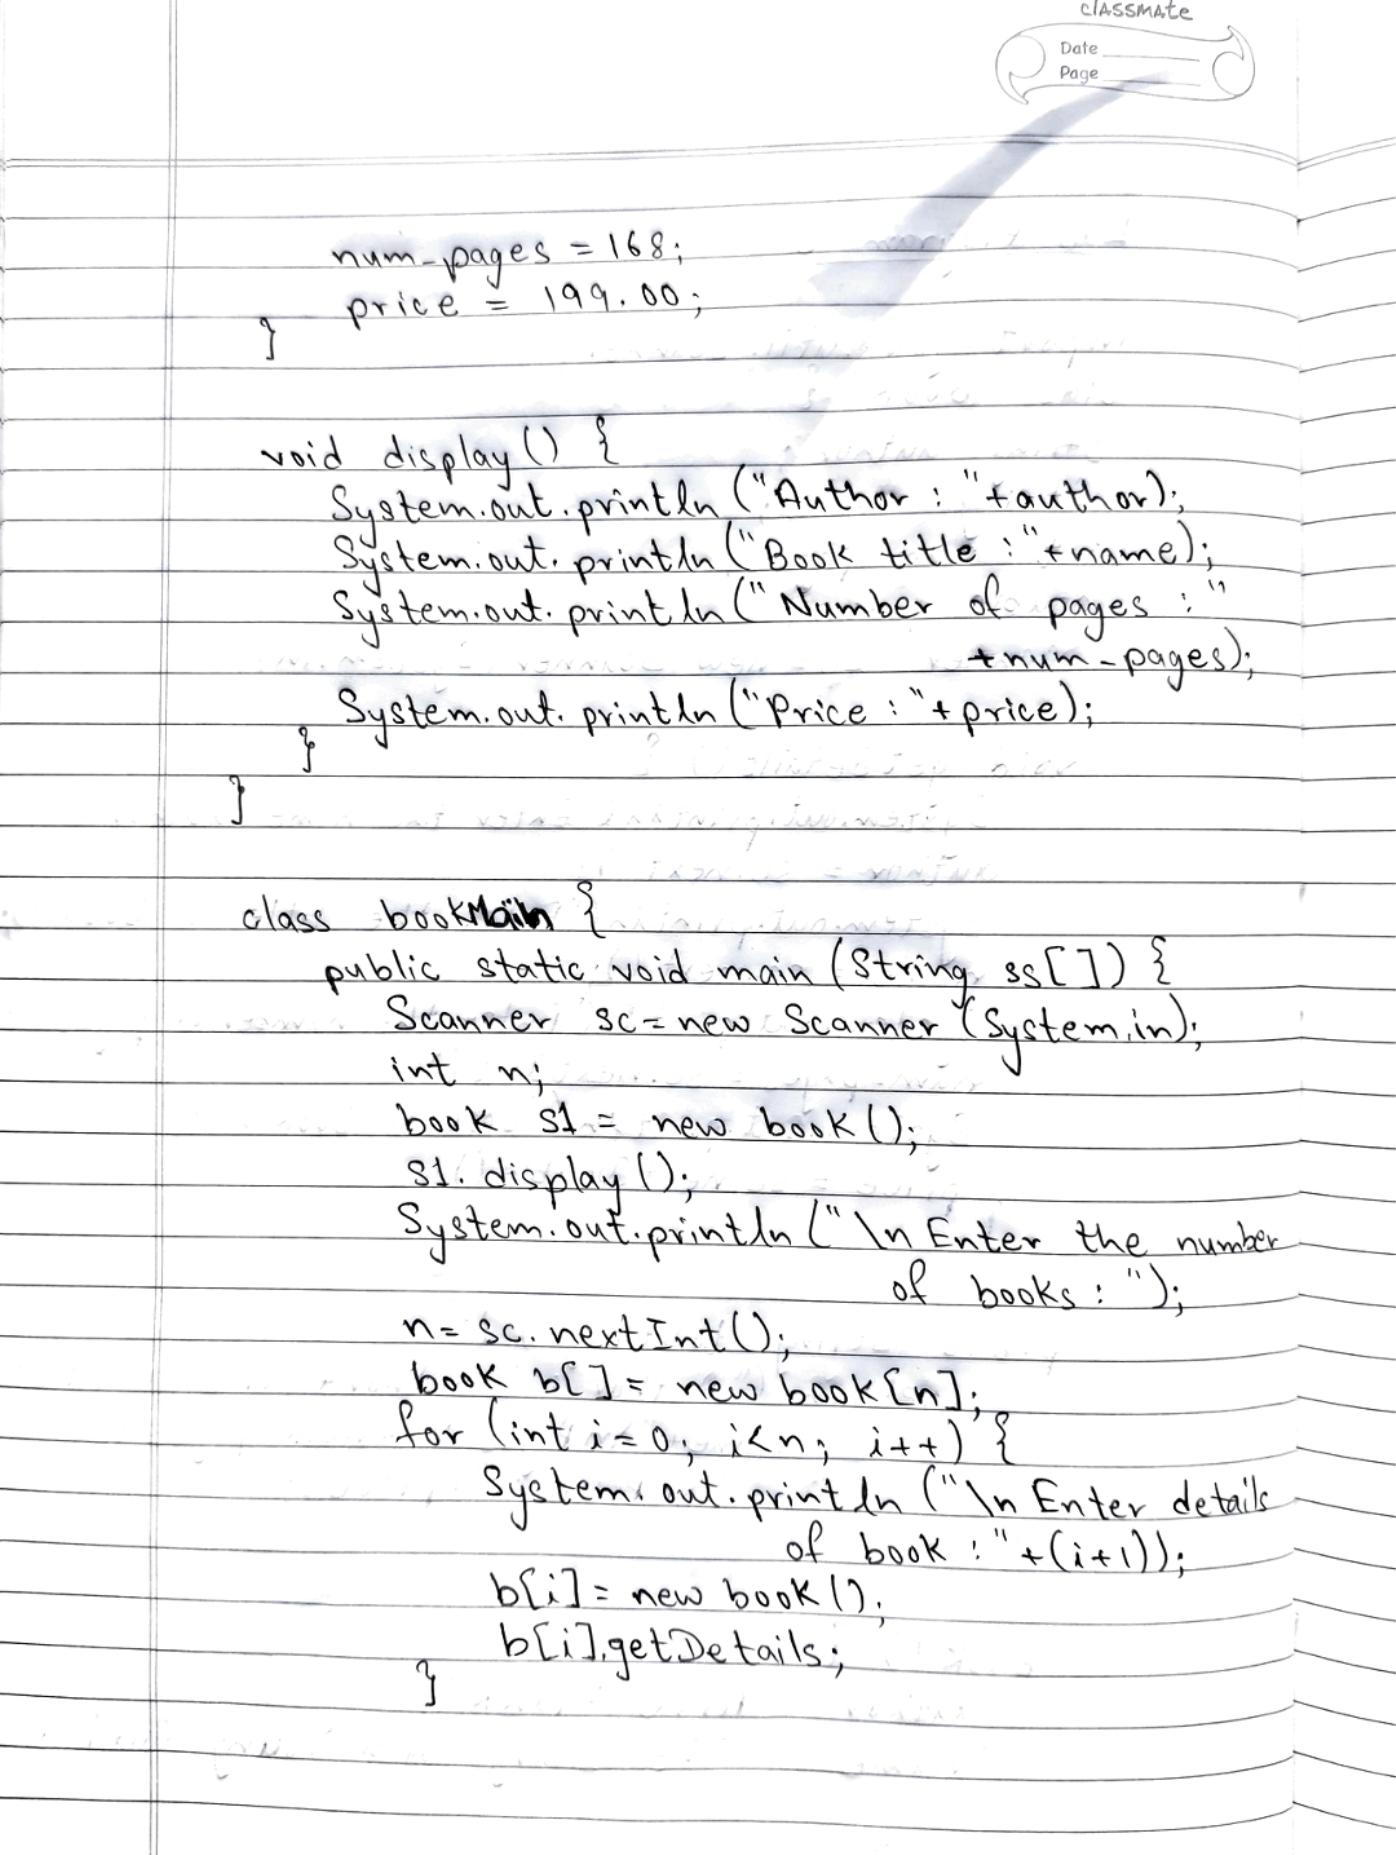 classmate
Date
Page
num-pages = 168;
price = 199.00;
}
void display() {
System.out.println("Author : "+author);
System.out.println("Book title :"+name);
System.out.println("Number of pages :"
+num-pages);
System.out.println("Price : "+price);
}
}
class bookMain {
public static void main (String ss[]) {
Scanner sc = new Scanner (System.in);
int n;
book s1 = new book();
s1.display();
System.out.println("\n Enter the number
of books : ");
n = sc.nextInt();
book b[] = new book[n];
for (int i = 0; i<n; i++) {
System.out.println("\n Enter details
of book : "+(i+1));
b[i] = new book();
b[i].getDetails;
}